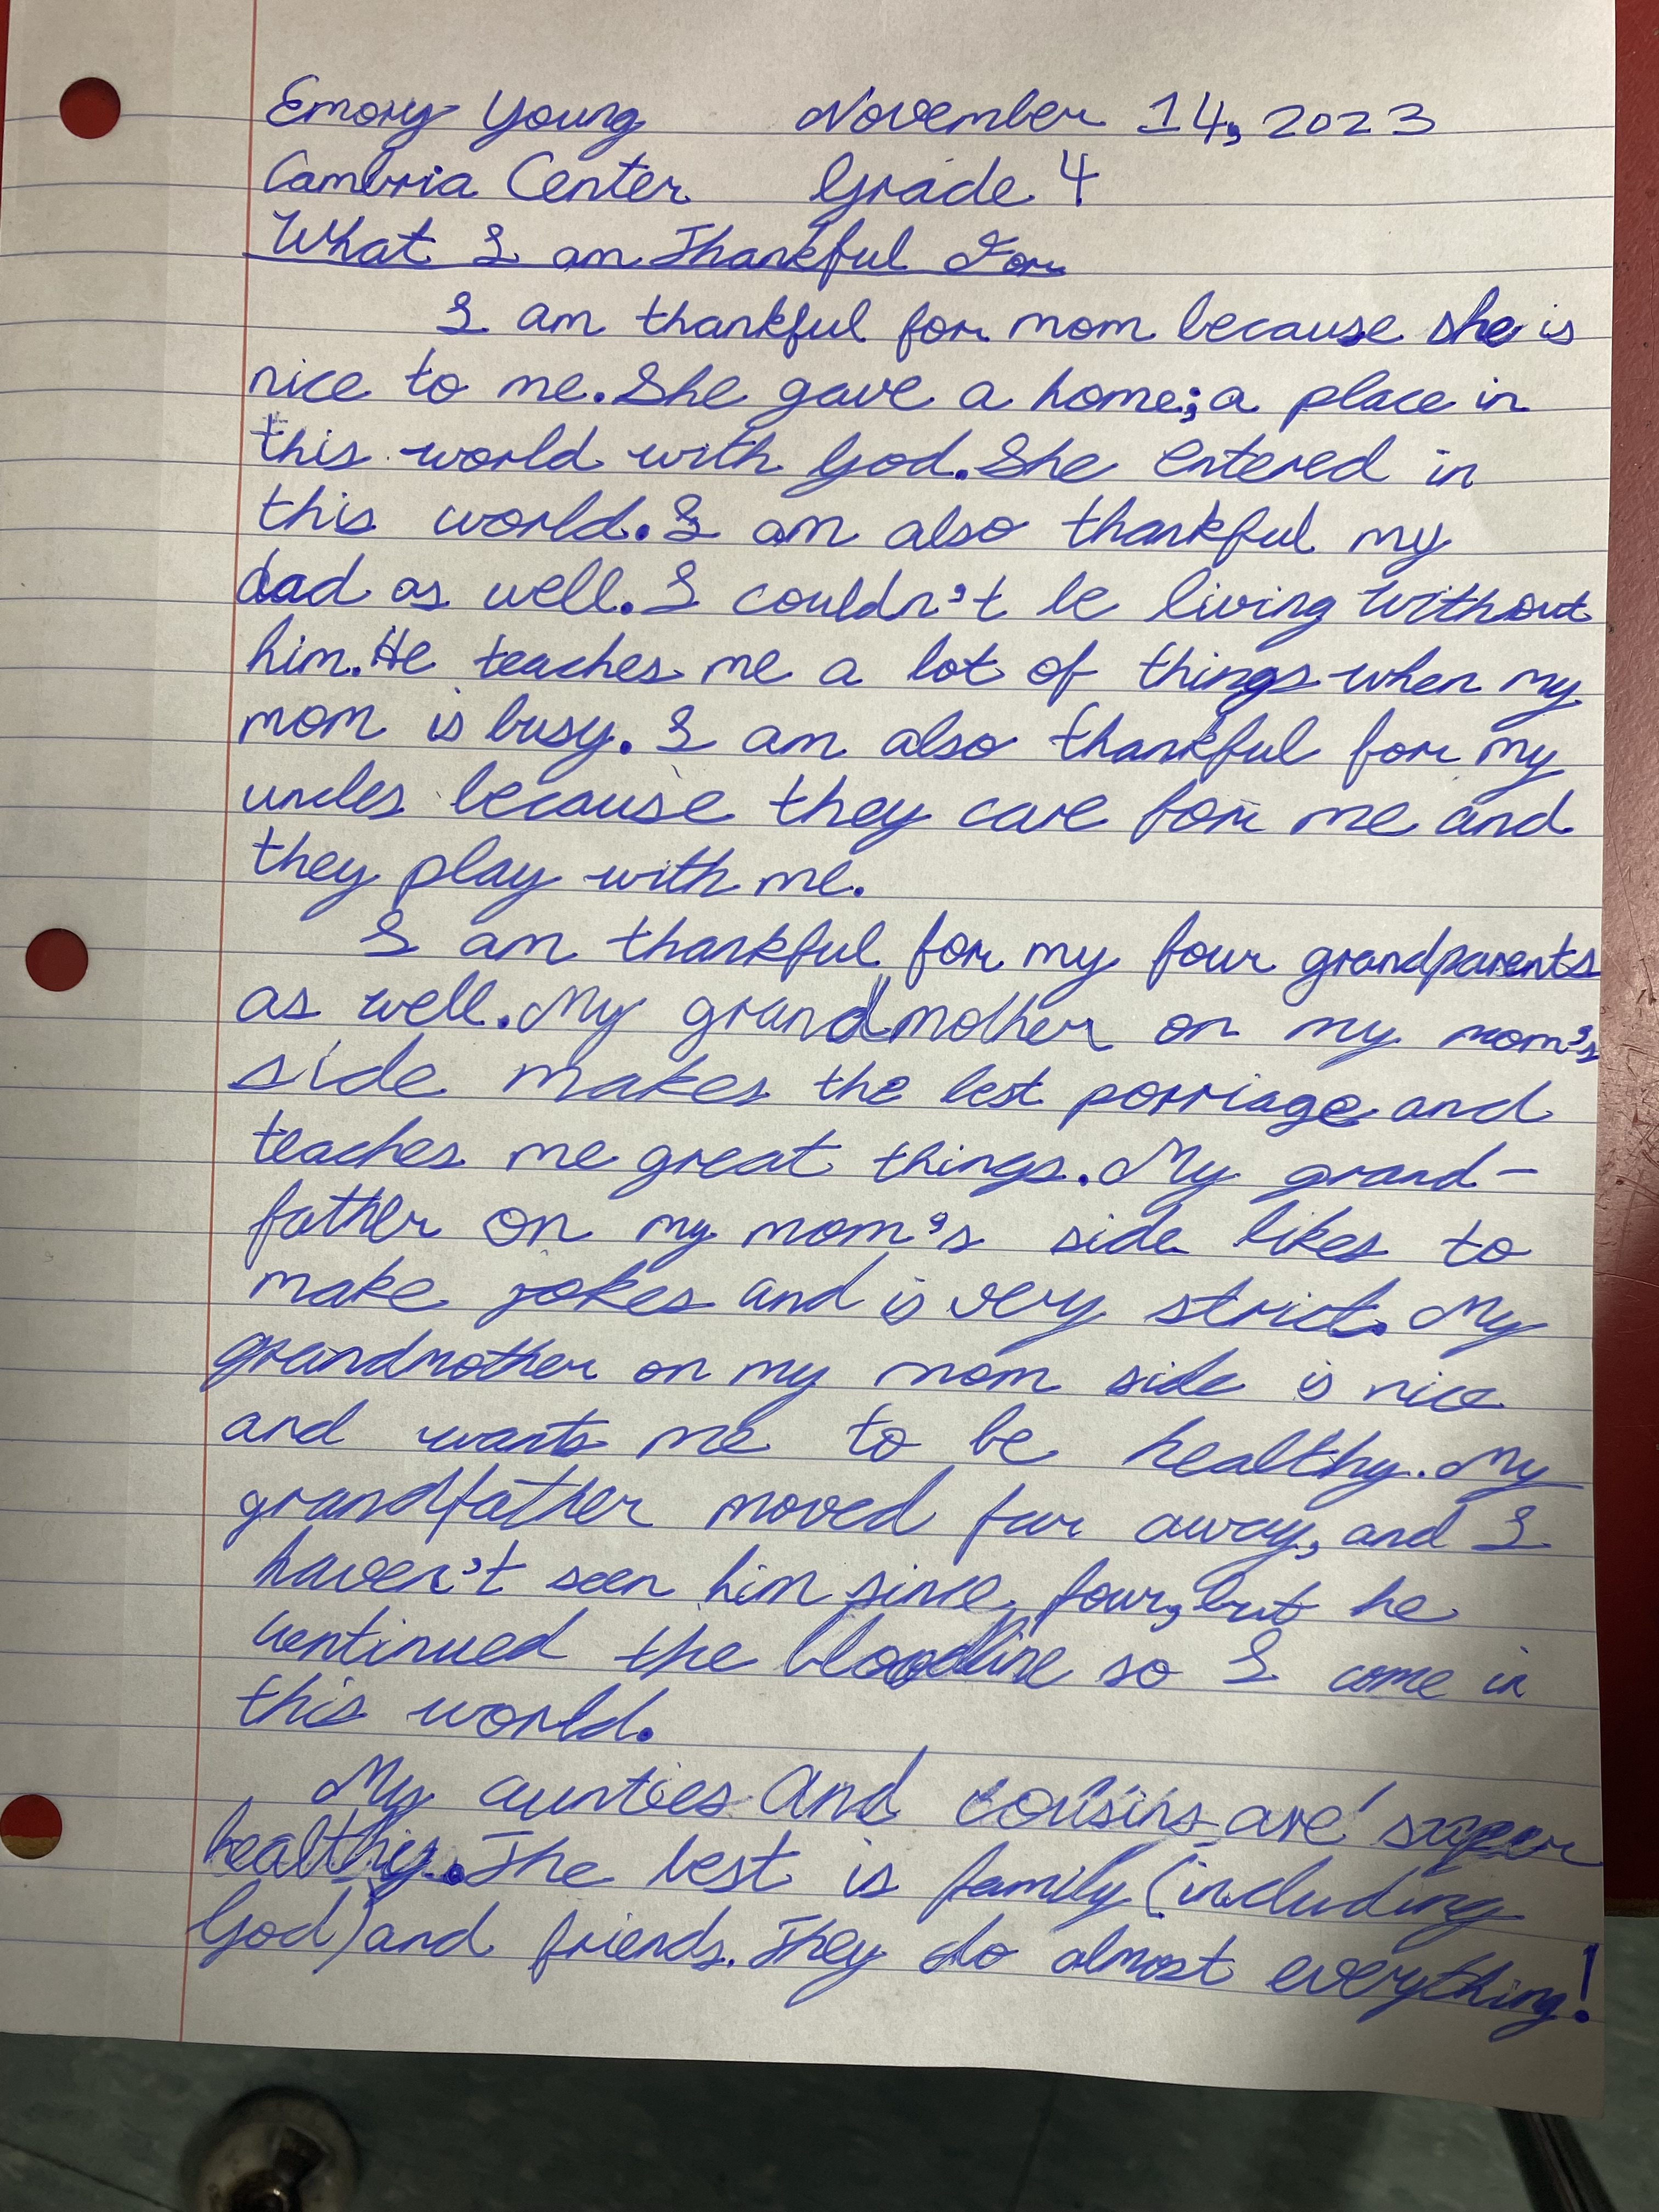 Emory Young November 14, 2023
Cambria Center Grade 4
What I am Thankful For
I am thankful for mom because she is
nice to me. She gave a home; a place in
this world with God. She entered in
this world. I am also thankful my
dad as well. I couldn't be living without
him. He teaches me a lot of things when my
mom is busy. I am also thankful for my
uncles because they care for me and
they play with me.
I am thankful for my four grandparents
as well. My grandmother on my mom's
side makes the best porriage and
teaches me great things. My grand-
father on my mom's side likes to
make jokes and is very strict. My
grandmother on my mom side is nice
and wants me to be healthy. My
grandfather moved far away, and I
haven't seen him since four, but he
continued the bloodline so I come in
this world.
My aunties and cousins are super
healthy. The best is family (including
God) and friends. They do almost everything!